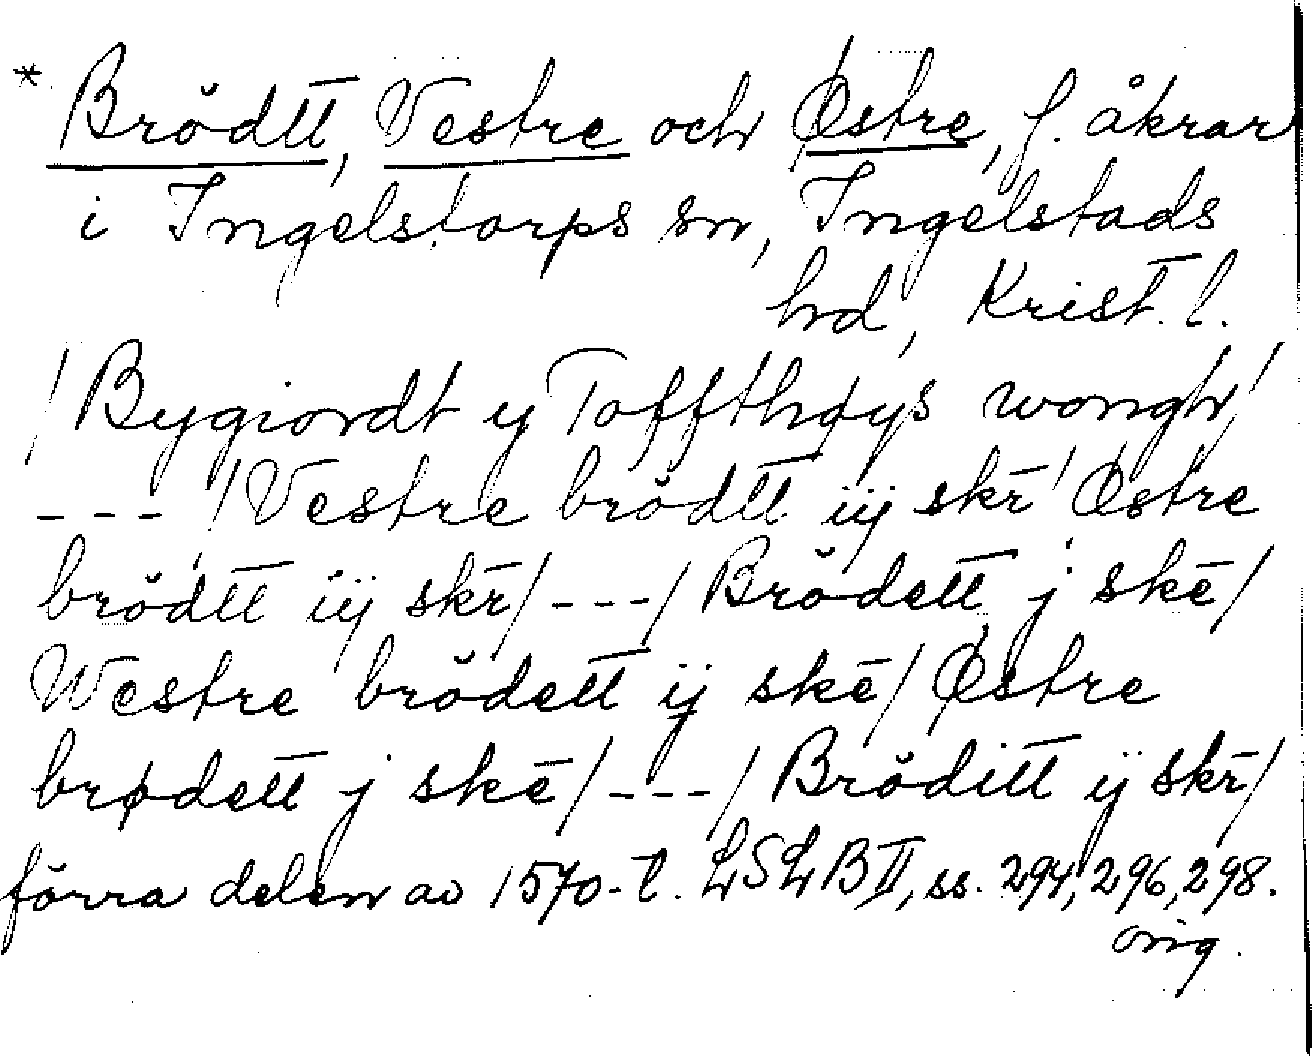 * Brödtt, Vestre och Østre, f. åkrar
i Ingelstorps sn, Ingelstads
hd, Krist. l.
/Bygiordt y Toffthøys wongh/
---/Vestre brödtt iij skr/Østre
brödtt iij skr/---/Brödett j skē/
Westre brödett ij skē/Østre
brødett j skē/---/Bröditt ij skr/
förra delen av 1570-t. LSLB II, ss. 294, 296, 298.
orig.